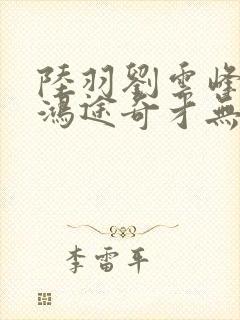 陸羽劉雲峰
鴻途奇才無
李雷平